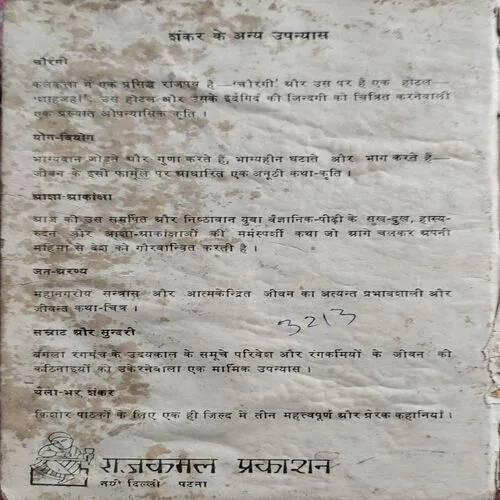 शंकर के अन्य उपन्यास
चौरंगी
कलकत्ता में एक प्रसिद्ध राजपथ है—'चौरंगी' और उस पर है एक होटल—
'शाहजहाँ'; उस होटल और उसके इर्दगिर्द की ज़िन्दगी को चित्रित करनेवाली
एक प्रख्यात औपन्यासिक कृति ।
योग-वियोग
भाग्यवान जोड़ते और गुणा करते हैं, भाग्यहीन घटाते और भाग करते हैं—
जीवन के इसी फार्मूले पर आधारित एक अनूठी कथा-कृति ।
आशा-आकांक्षा
आज की उस समर्पित और निष्ठावान युवा वैज्ञानिक-पीढ़ी के सुख-दुख, हास्य-
रुदन और आशा-आकांक्षाओं की मर्मस्पर्शी कथा जो आगे चलकर अपनी
महिमा से देश को गौरवान्वित करती है ।
जन-अरण्य
महानगरीय सन्त्रास और आत्मकेन्द्रित जीवन का अत्यन्त प्रभावशाली और
जीवन्त कथा-चित्र ।
3213
सम्राट और सुन्दरी
बंगला रंगमंच के उदयकाल के समूचे परिवेश और रंगकर्मियों के जीवन की
कठिनाइयों को उकेरनेवाला एक मार्मिक उपन्यास ।
थैला-भर शंकर
किशोर पाठकों के लिए एक ही जिल्द में तीन महत्त्वपूर्ण और प्रेरक कहानियाँ ।
राजकमल प्रकाशन
नयी दिल्ली पटना